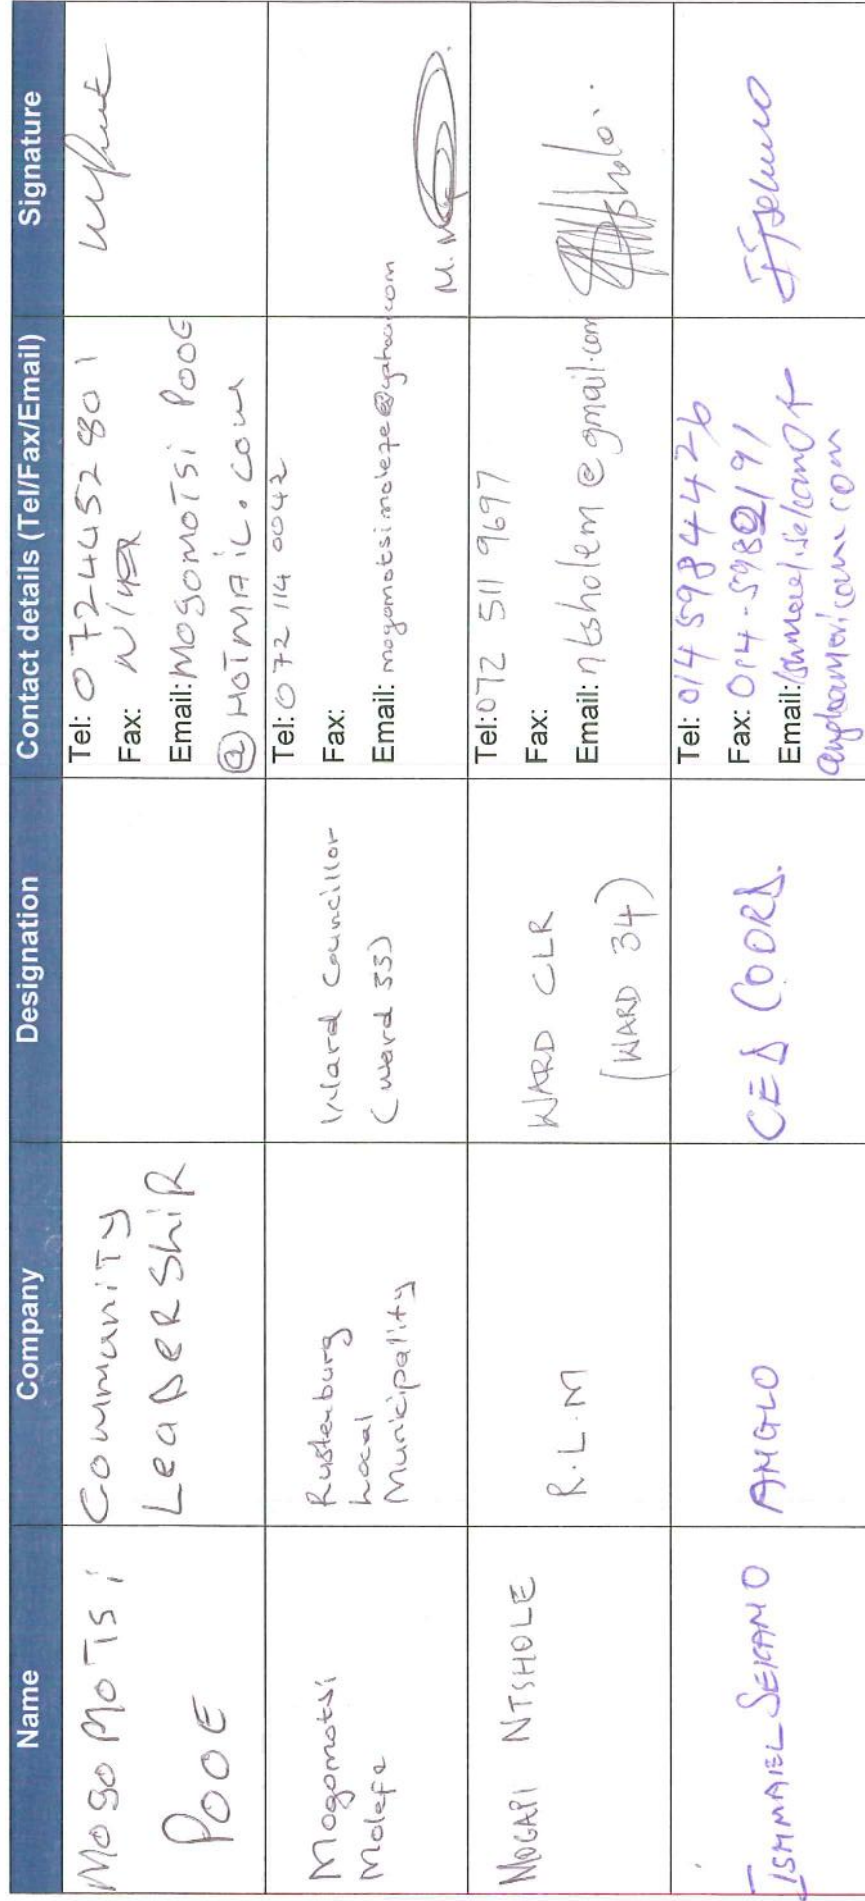 Name Company Designation Contact details (Tel/Fax/Email) Signature
MogoMoTsi
POOE
Community
LeaDeRShiP
Tel: 0724452801
Fax: N/A
Email: MogomoTsi POOE
@HOTMAiL.com
Mogomotsi
Molefe
Rustenburg
Local
Municipality
Ward Councillor
(ward 33)
Tel: 072 114 0042
Fax:
Email: mogomotsimolefe@yahoo.com
MOGAPI NTSHOLE
R.L.M
WARD CLR
(WARD 34)
Tel: 072 511 9697
Fax:
Email: ntsholem@gmail.com
ISHMAIEL SEKAMO
ANGLO
CED COORD.
Tel: 014 598 4426
Fax: 014-598 2191
Email:
angloamerican.com